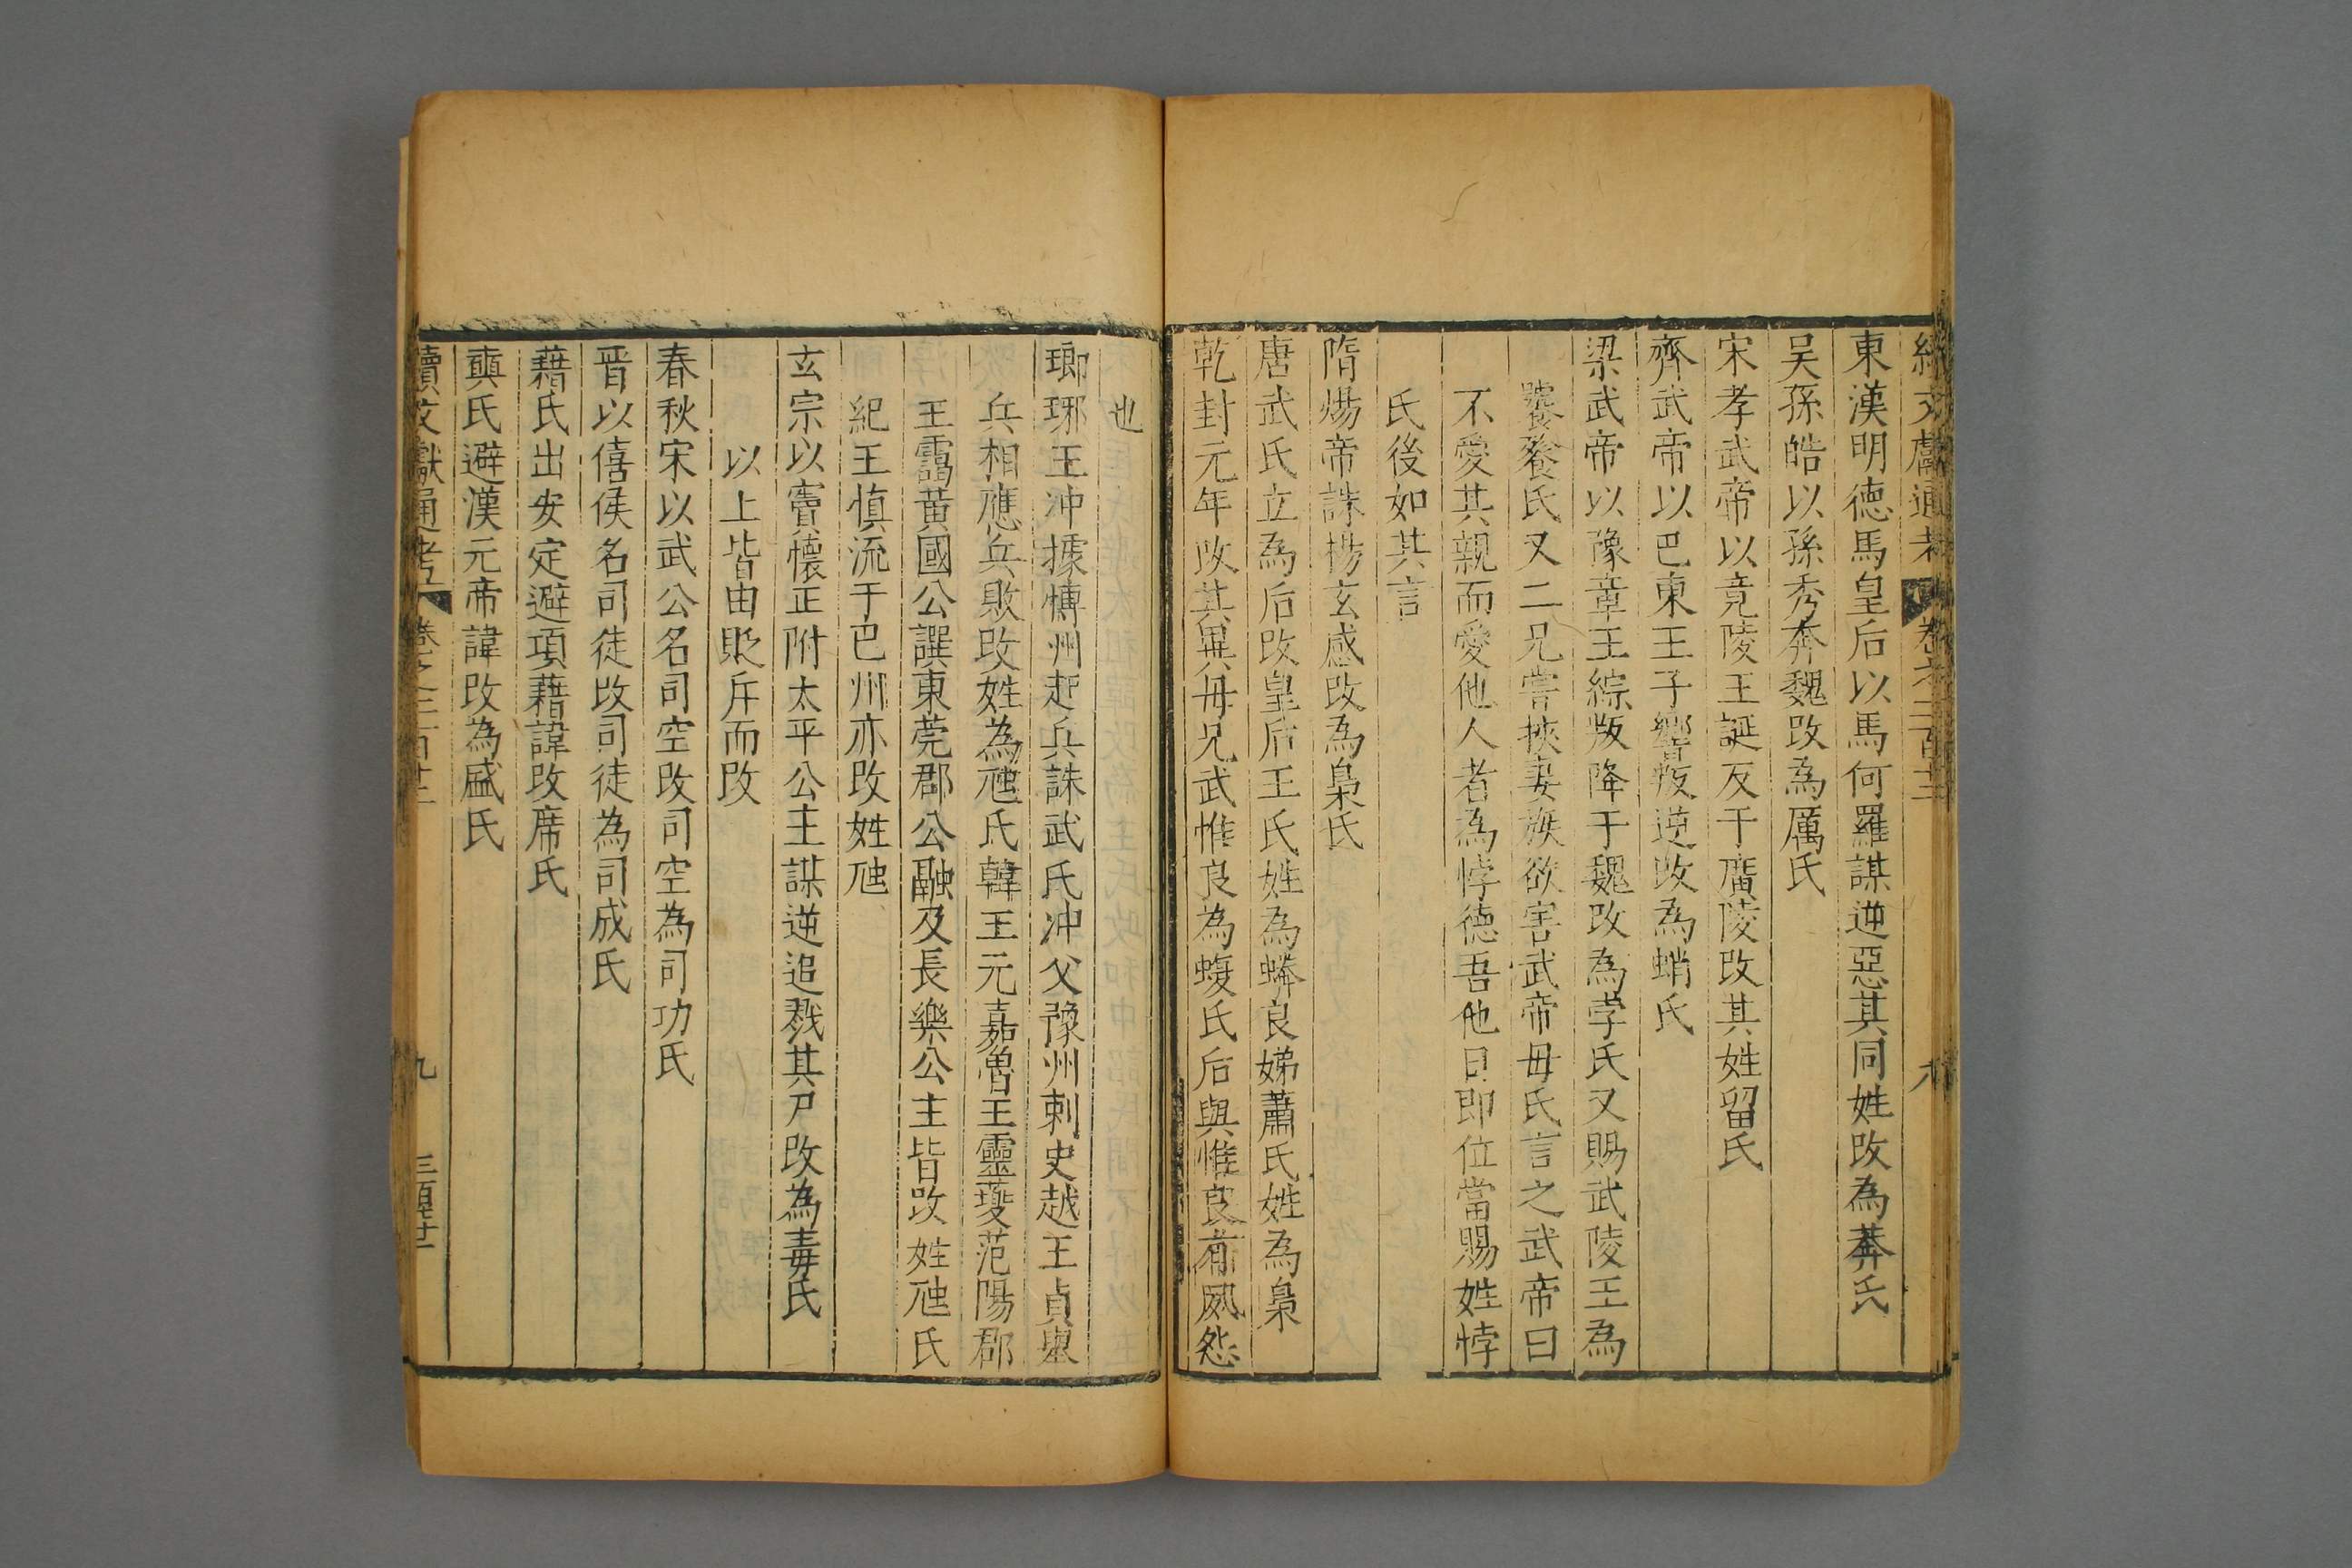 續文獻通考 卷之二百十三 八
東漢明德馬皇后以馬何羅謀逆惡其同姓改為莽氏
吴孫皓以孫秀奔魏改為厲氏
宋孝武帝以竟陵王誕反于廣陵改其姓留氏
齊武帝以巴東王子響叛逆改為蛸氏
梁武帝以豫章王綜叛降于魏改為孛氏又賜武陵王為
饕餮氏又二兄嘗挾妻族欲害武帝毋氏言之武帝曰
不愛其親而愛他人者為悖德吾他日即位當賜姓悖
氏後如其言
隋煬帝誅楊玄感改為梟氏
唐武氏立為后改皇后王氏姓為蟒良娣蕭氏姓為梟
乾封元年改其異毋兄武惟良為蝮氏后與惟良有夙怨
也
瑯琊王沖據博州起兵誅武氏冲父豫州刺史越王貞舉
兵相應兵敗改姓為虺氏韓王元嘉魯王靈夔范陽郡
王靄黃國公譔東莞郡公融及長樂公主皆改姓虺氏
紀王慎流于巴州亦改姓虺
玄宗以竇懷正附太平公主謀逆追戮其尸改為毒氏
以上皆由貶斥而改
春秋宋以武公名司空改司空為司功氏
晋以僖侯名司徒改司徒為司成氏
藉氏出安定避項藉諱改席氏
奭氏避漢元帝諱改為盛氏
續文獻通考 卷之二百十三 九